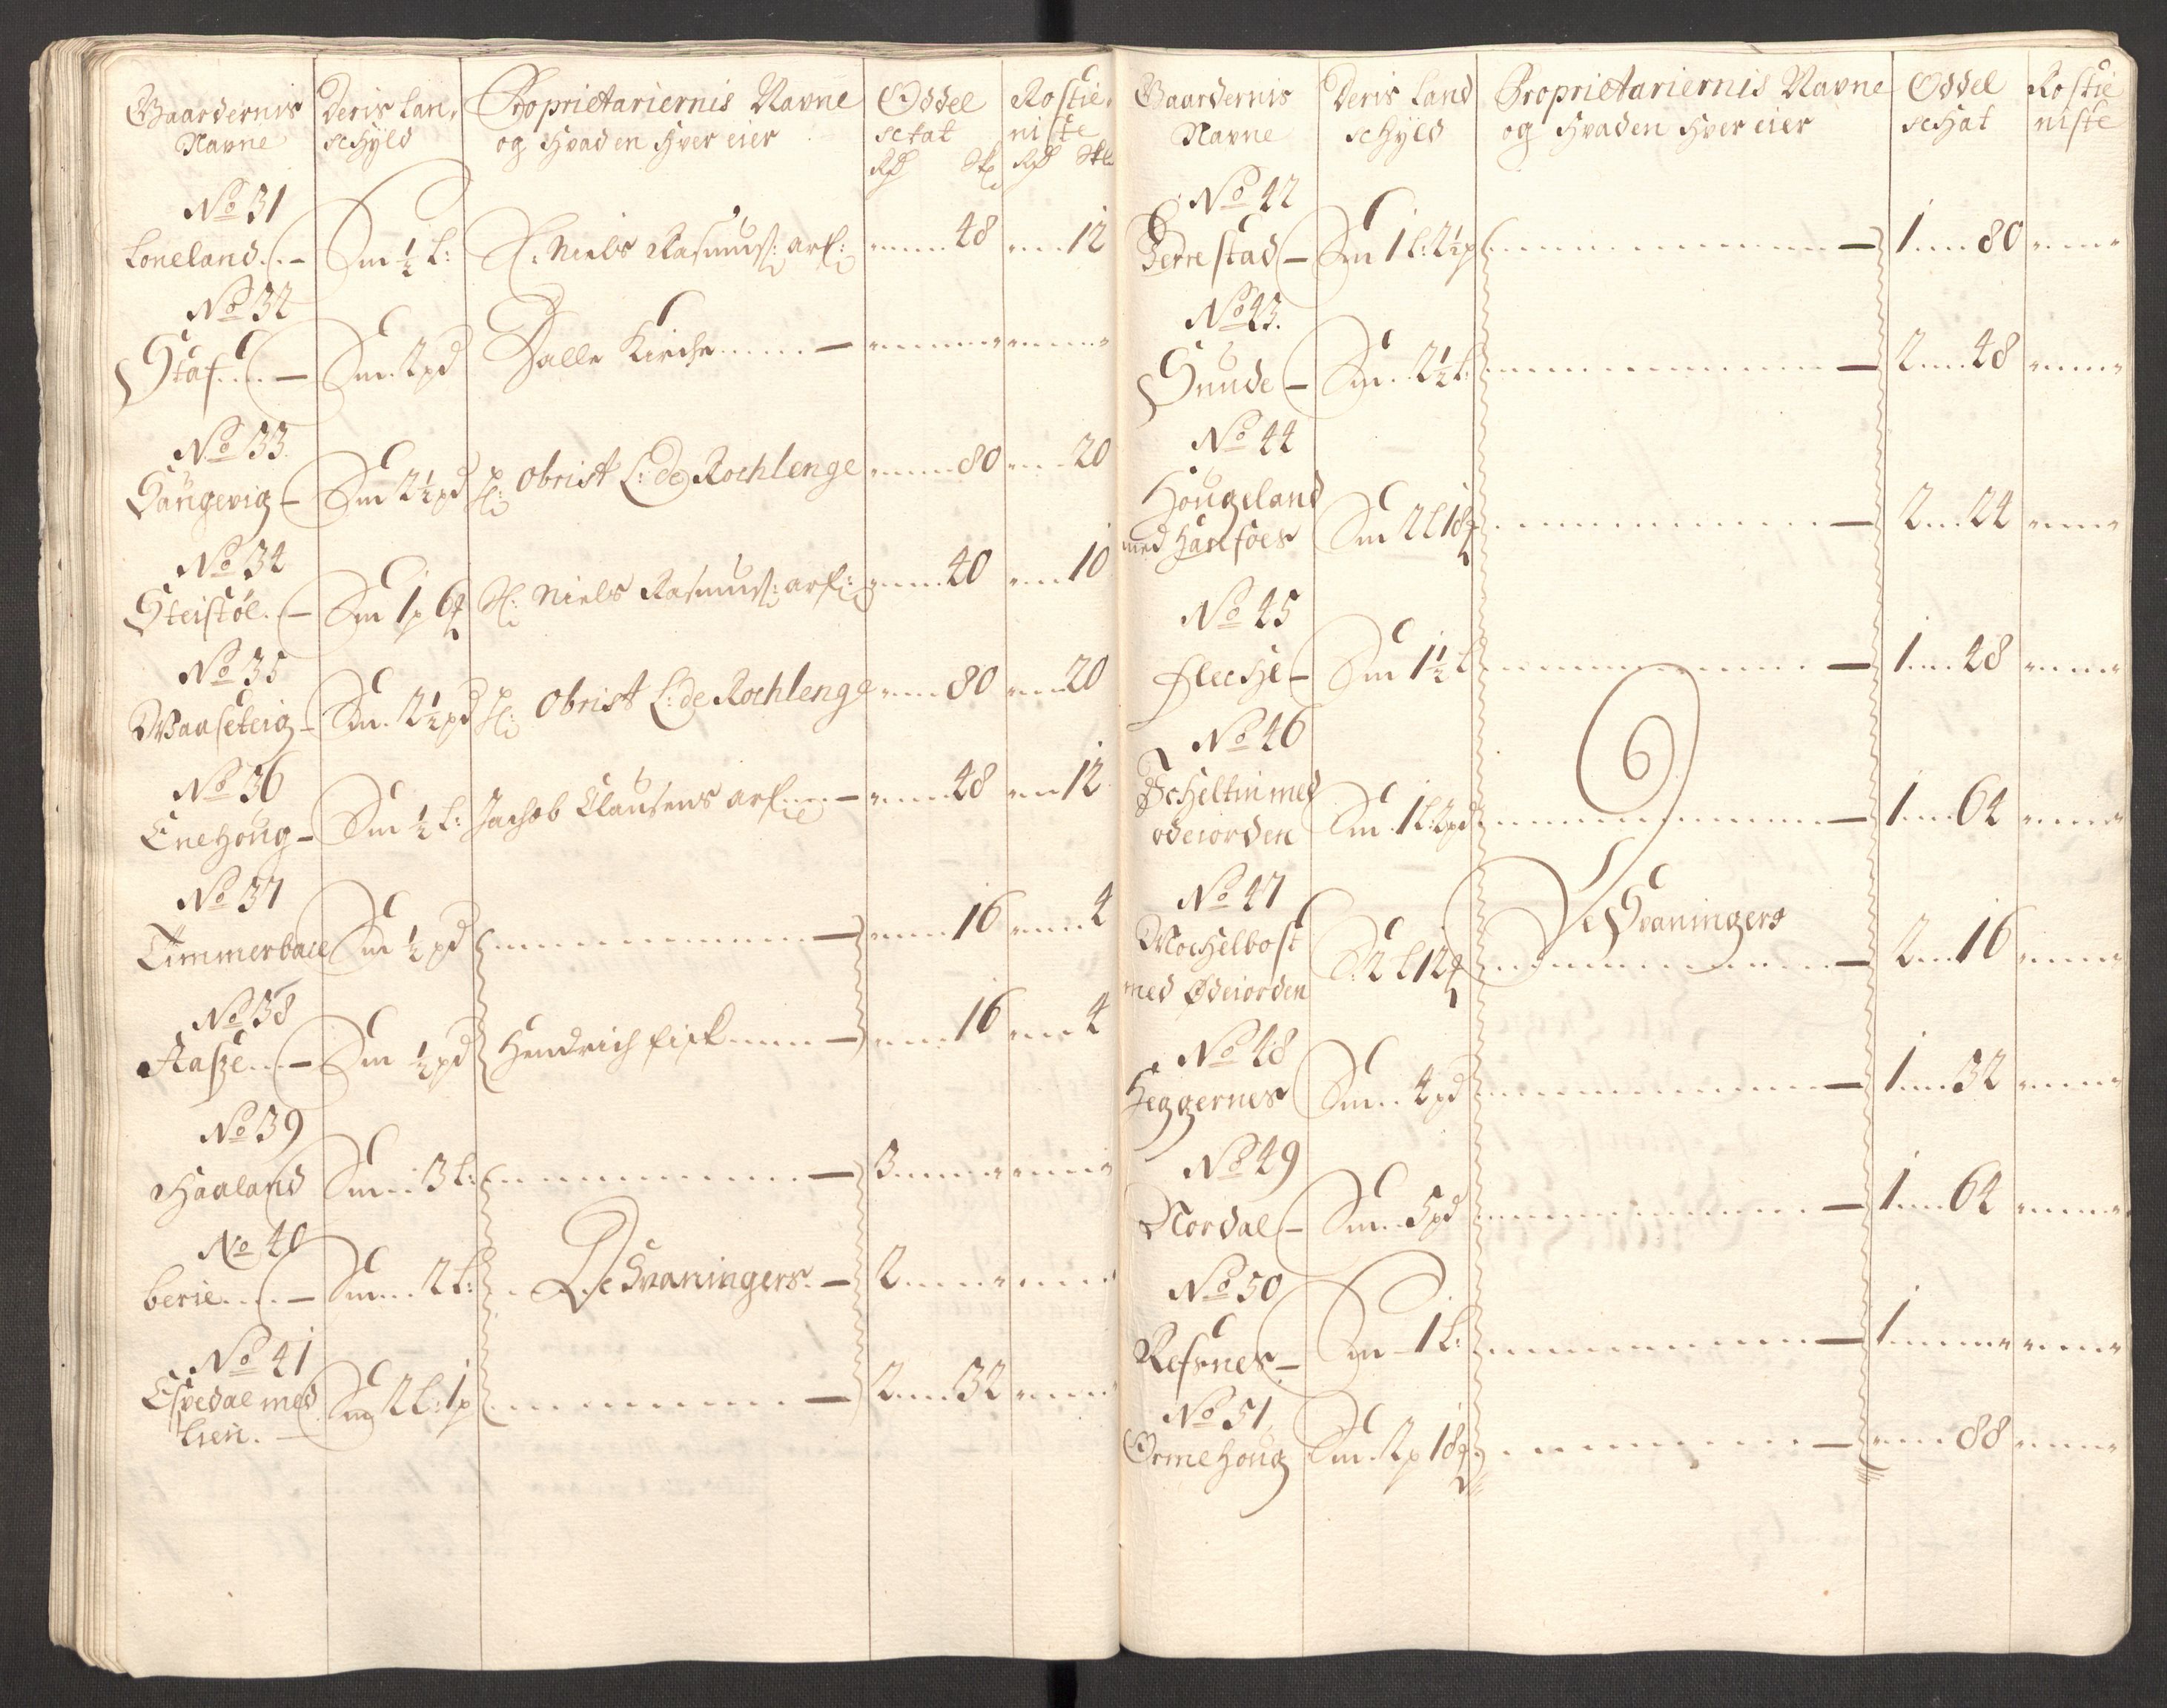 Gaardernis Navne | Deris Lan, schyld | Proprietariernis Navne og Hvad en Hver eier | Oddel sctat Rd Sk | Rostie, niste Rd Sk
No 31
Loneland | Sm ½ L: | Sl. Niels Rasmuss: arf: | 48 | 12
No 32
Staf | Sm. 2 pd | Dalle Kirche
No 33.
Sangevig | Sm 2½ pd | Hr: Obrist L: de Rochlenge | 80 | 20
No 34
Steistøl | Sm 1 p 6 | Sl: Niels Rasmuss: arf: | 40 | 10
No 35
Waaseteig | Sm. 2½ pd | Hr: Obrist L: de Rochlenge | 80 | 20
No 36
Enehoug | Sm ½ L: | Jachob Clausens arf | 48 | 12
No 37
Timmerbace | Sm ½ pd | 16 | 4
No 38
Aasze | Sm ½ pd | Hendrich Fisk | 16 | 4
No 39
Haaland | Sm 3 L: | 3
No 40
berie | Sm 2 L: | De Svaningers | 2
No 41
Espedal med Lien. | Sm 2 L: 1 p | 2 32
Gaardernis Navne | Deris Land schyld | Proprietariernis Navne og Hvad en Hver eier | Oddel schat | Rostie niste
No 42
Berrestad | Sm 1 L: 2½ p | 1 80
No 43.
Sunde | Sm. 2½ L: | 2 48
No 44
Hougeland med Hanefoes | Sm 2 L 18 | 2 24
No 45
Fleche | Sm 1½ L | 1 48
No 46
Scheltin med odeiorden | Sm. 1 L: 2 pd | 1 64
No 47
Mochelbost med Ødeiorden | S: 2 L 12 | De Svaningers | 2 16
No 48
Heggernes | Sm. 4 pd | 1 32
No 49
Nordal | Sm. 5 pd | 1 64
No 50
Refsnes | Sm 1 L: | 1
No 51
Ormehoug | Sm. 2 p 18 | 88